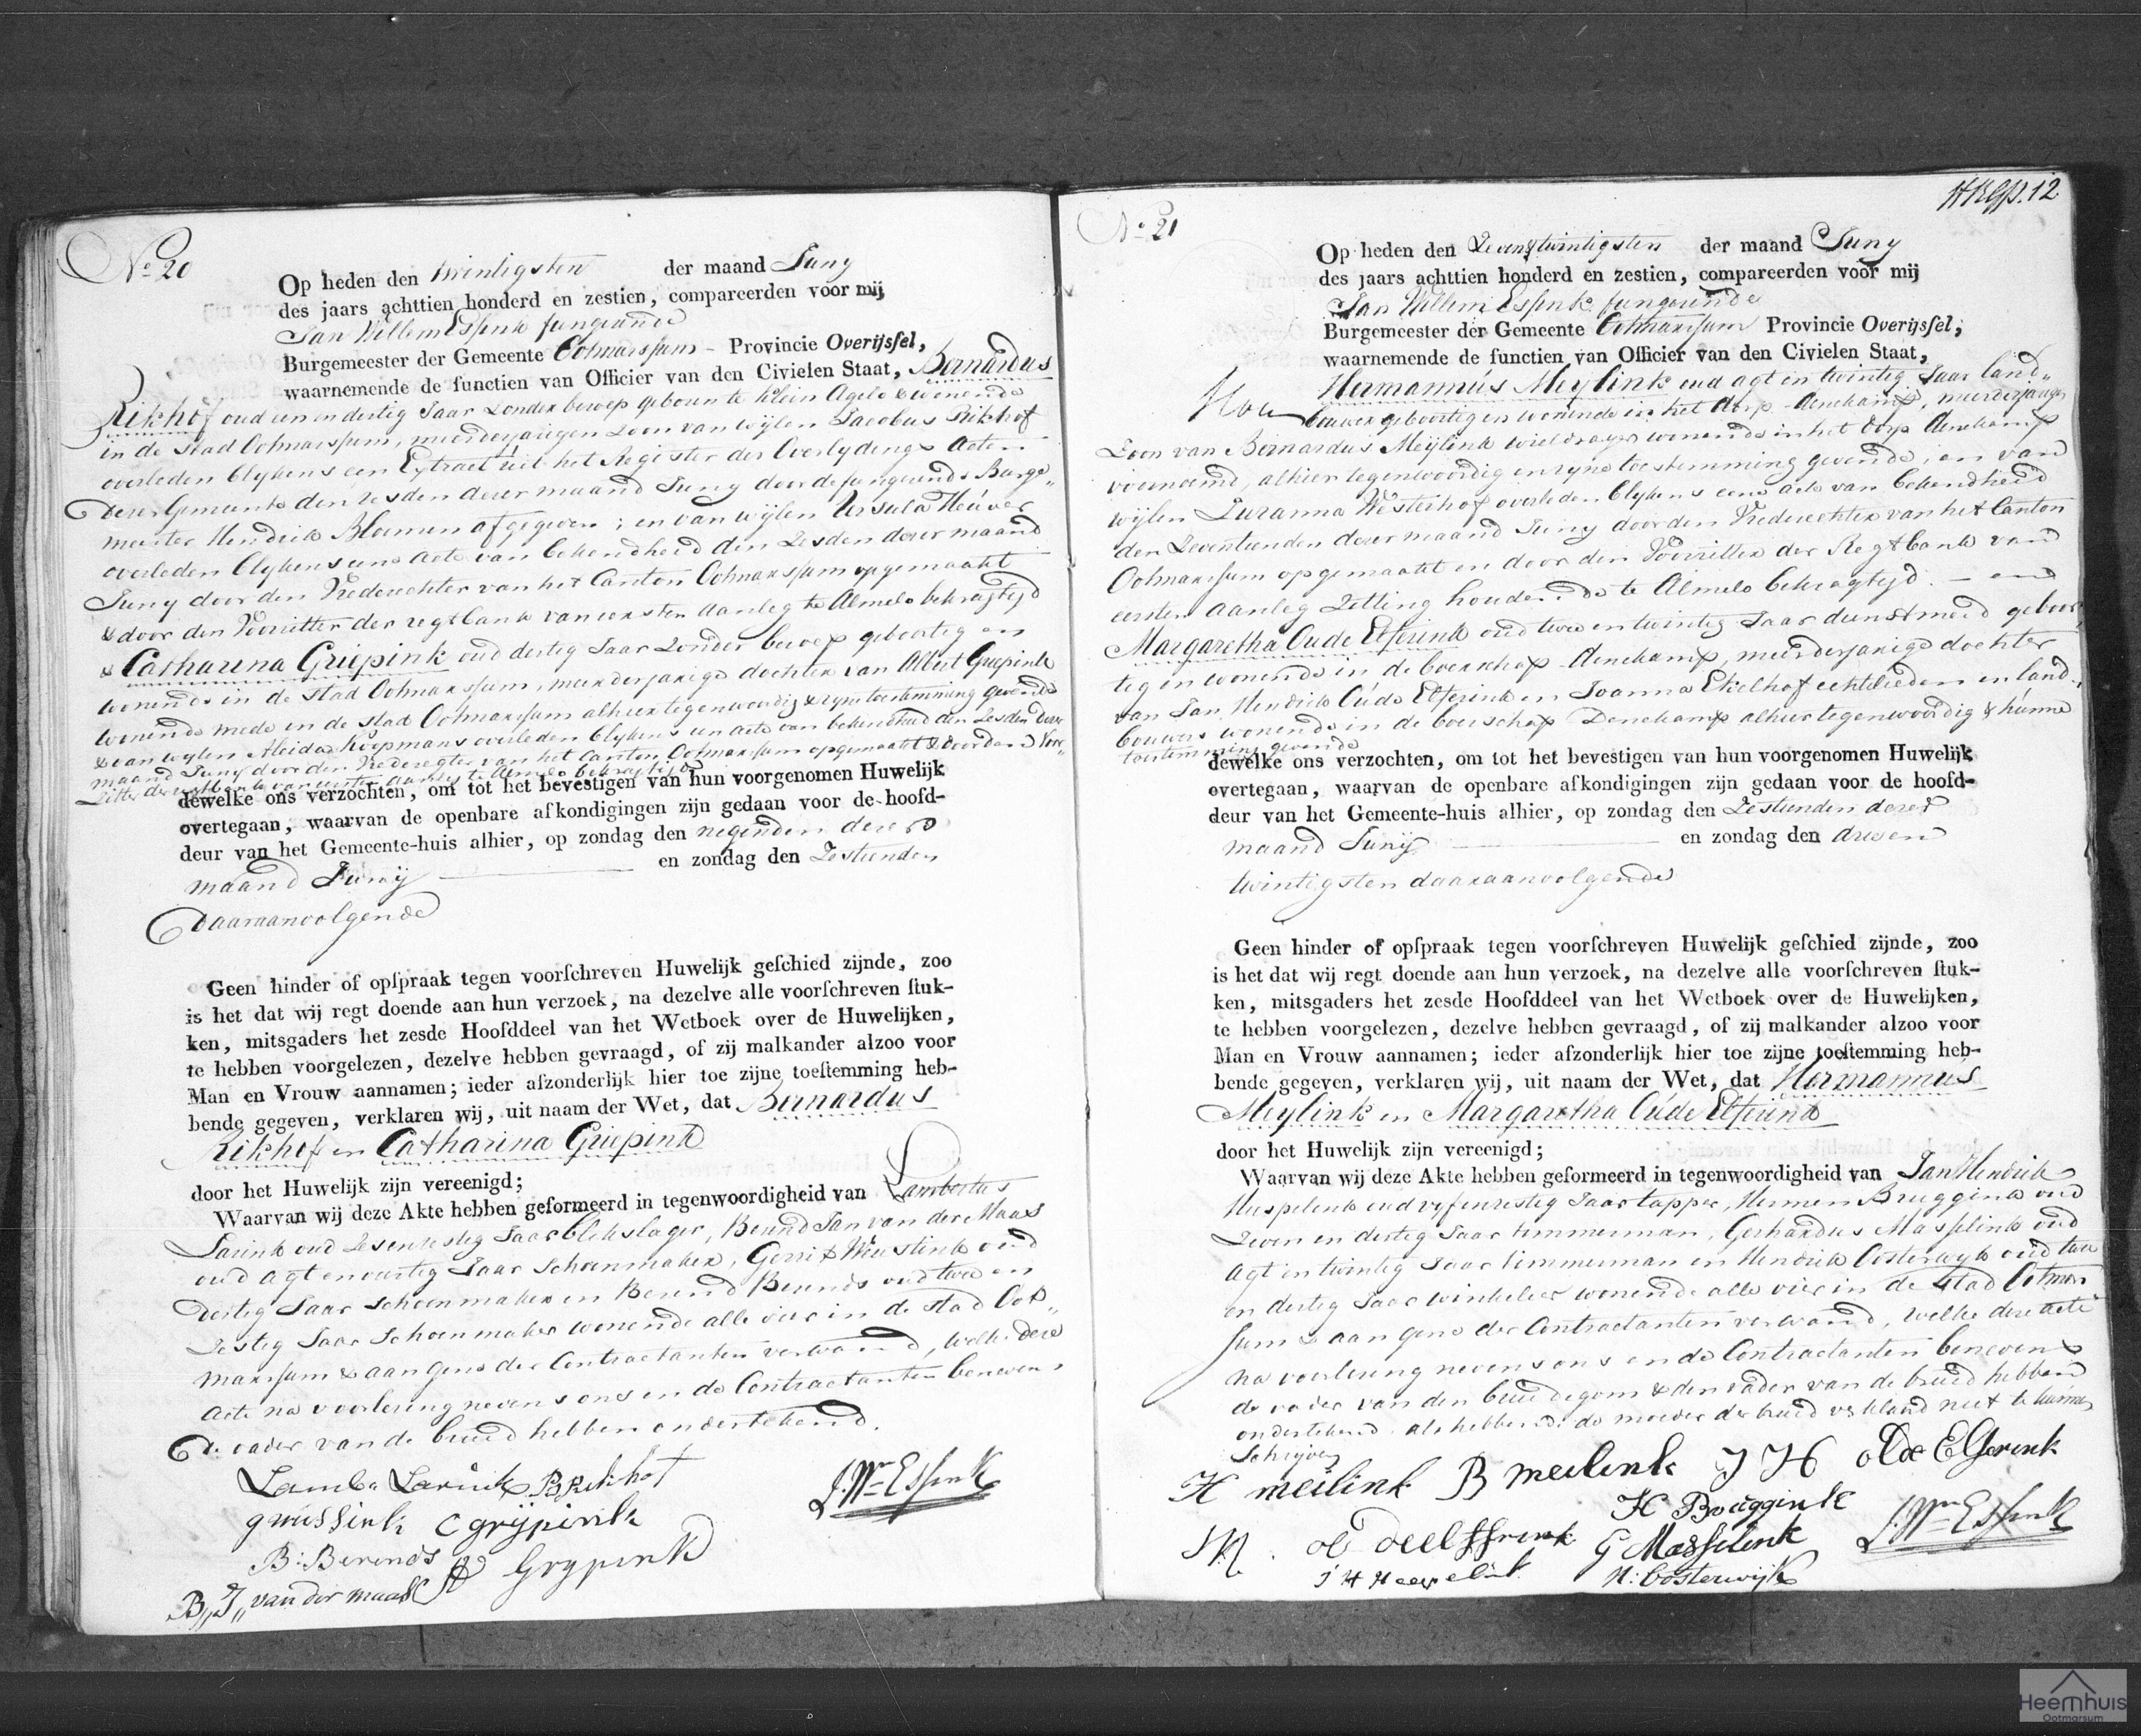 No 20
Op heden den twintigsten der maand Juny
des jaars achttien honderd en zestien, compareerden voor mij
Jan Willem Essink fungerende
Burgemeester der Gemeente Ootmarssum - Provincie Overijssel,
waarnemende de functien van Officier van den Civielen Staat, Bernardus
Rikhof oud een en dertig Jaar zonder beroep geboren te klein Agelo & wonende
in de stad Ootmarssum, meerderjarigen zoon van wijlen Jacobus Rikhof
overleden blykens een Extract uit het Register der Overlydings Acten
dezer Gemeente den zesden dezer maand Juny door de fungerende Burge„
meester Hendrik Bloemen afgegeven; en van wijlen Ursula Heuver
overleden blykens eene acte van bekendheid den zesden dezer maand
Juny door den Vrederechter van het Canton Ootmarssum opgemaakt
& door den Voorzitter der regtbank van eersten Aanleg te Almelo bekragtigd
& Catharina Griepink oud dertig Jaar zonder beroep geboortig en
wonende in de stad Ootmarssum, meerderjarige dochter van Albert Griepink
wonende mede in de stad Ootmarssum alhier tegenwoordig & zyne toestemming gevende
& van wylen Aleida Koopmans overleden blykens een acte van bekendheid den zesden dezer
maand Juny door den Vrederegter van het Canton Ootmarssum opgemaakt & door den Voor„
zitter der regtbank van eersten aanleg te Almelo bekragtigd
dewelke ons verzochten, om tot het bevestigen van hun voorgenomen Huwelijk
overtegaan, waarvan de openbare afkondigingen zijn gedaan voor de hoofd-
deur van het Gemeente-huis alhier, op zondag den negenden dezer
maand Junij en zondag den zestienden
daaraanvolgende
Geen hinder of opspraak tegen voorschreven Huwelijk geschied zijnde, zoo
is het dat wij regt doende aan hun verzoek, na dezelve alle voorschreven stuk-
ken, mitsgaders het zesde Hoofddeel van het Wetboek over de Huwelijken,
te hebben voorgelezen, dezelve hebben gevraagd, of zij malkander alzoo voor
Man en Vrouw aannamen; ieder afzonderlijk hier toe zijne toestemming heb-
bende gegeven, verklaren wij, uit naam der Wet, dat Bernardus
Rikhof en Catharina Griepink
door het Huwelijk zijn vereenigd;
Waarvan wij deze Akte hebben geformeerd in tegenwoordigheid van Lambertus
Larink oud zesenzestig Jaar blekslager, Berend Jan van der Maas
oud agt en veertig Jaar schoenmaker, Gerrit Weustink oud
dertig Jaar schoenmaker en Berend Berends oud twee en
zestig Jaar schoenmaker wonende alle vier in de stad Oot„
marssum & aan geene der Contractanten verwand, welke deze
acte na voorlezing nevens ons en de Contractanten benevens
de vader van de bruid hebben ondertekend.
Lamb. Larink B Rikhof
g wissink C grijpink
B: Berends A Grypink
B„J„ van der maas
J. Wm Essink
No 21
Op heden den zevenentwintigsten der maand Juny
des jaars achttien honderd en zestien, compareerden voor mij
Jan Willem Essink fungerende
Burgemeester der Gemeente Ootmarssum Provincie Overijssel;
waarnemende de functien van Officier van den Civielen Staat,
Hermannus Meylink oud agt en twintig Jaar land„
bouwer geboortig en wonende in het dorp Denekamp, meerderjarigen
Zoon van Bernardus Meylink wieldrayer wonende in het dorp Denekamp
voornoemd, alhier tegenwoordig en zyne toestemming gevende, en van
wijlen Zuzanna Westerhof overleden blykens eene acte van bekendheid
den zeventienden dezer maand Juny door den Vrederechter van het Canton
Ootmarssum opgemaakt en door den Voorzitter der Regtbank van
eersten aanleg zitting houdende te Almelo bekragtigd. — en
Margaretha Oude Elferink oud twee en twintig Jaar dienstmeid geboor„
tig en wonende in de boerschap Denekamp, meerderjarige dochter
van Jan Hendrik Oude Elferink en Joanna Ekelhof echtelieden en land„
bouwers wonende in de boerschap Denekamp alhier tegenwoordig & hunne
toestemming gevende
dewelke ons verzochten, om tot het bevestigen van hun voorgenomen Huwelijk
overtegaan, waarvan de openbare afkondigingen zijn gedaan voor de hoofd-
deur van het Gemeente-huis alhier, op zondag den zestienden dezer
maand Junij en zondag den drieen
twintigsten daaraanvolgende
Geen hinder of opspraak tegen voorschreven Huwelijk geschied zijnde, zoo
is het dat wij regt doende aan hun verzoek, na dezelve alle voorschreven stuk-
ken, mitsgaders het zesde Hoofddeel van het Wetboek over de Huwelijken,
te hebben voorgelezen, dezelve hebben gevraagd, of zij malkander alzoo voor
Man en Vrouw aannamen; ieder afzonderlijk hier toe zijne toestemming heb-
bende gegeven, verklaren wij, uit naam der Wet, dat Hermannus
Meylink en Margaretha Oude Elferink
door het Huwelijk zijn vereenigd;
Waarvan wij deze Akte hebben geformeerd in tegenwoordigheid van Jan Hendrik
Huspelink oud vyfenzestig Jaar tapper, Hermen Bruggink oud
zeven en dertig Jaar timmerman, Gerhardus Masselink oud
agt en twintig Jaar timmerman en Hendrik Oosterwyk oud twee
en dertig Jaar winkelier wonende alle vier in de stad Ootmar
sum & aan gene der Contractanten verwand, welke deze acte
na voorlezing nevens ons en de Contractanten benevens
de vader van den bruidegom & den vader van de bruid hebben
ondertekend. als hebbende de moeder der bruid verklaard niet te kunnen
schrijven
H meilink B meilink J H olde Elferink
H Bruggink
G Masselink
H: Oosterwijk
J. Wm Essink
Heemhuis
Ootmarsum